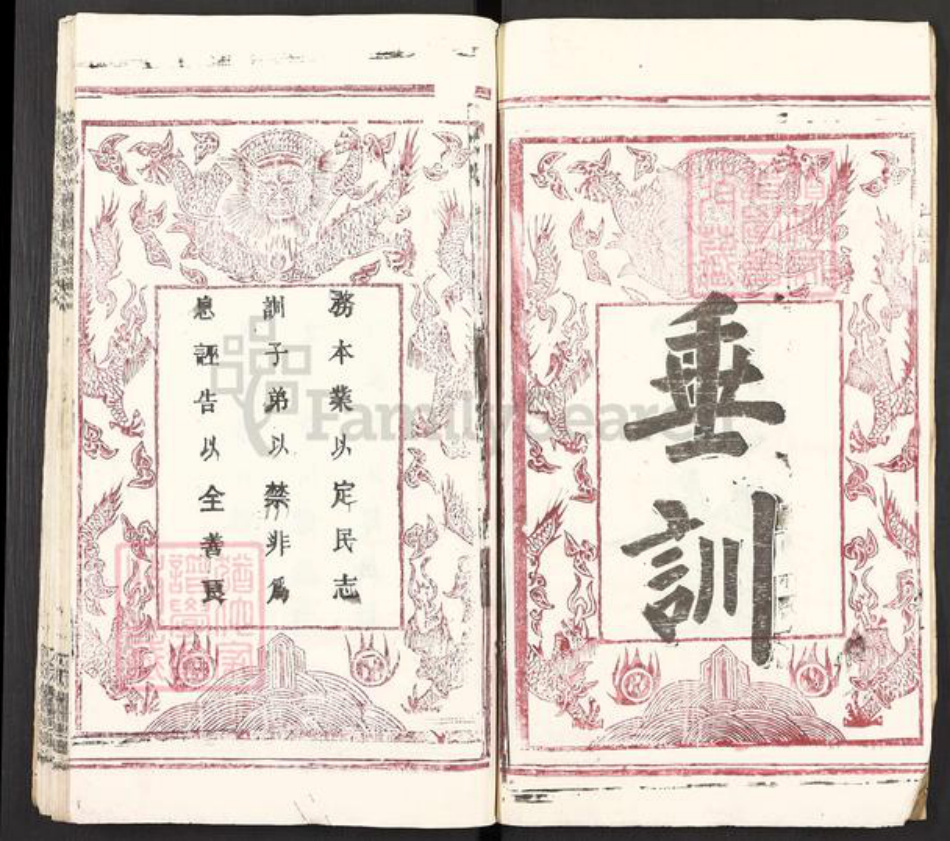 垂訓
務本業以定民志
訓子弟以禁非爲
息誣告以全善良
FamilySearch